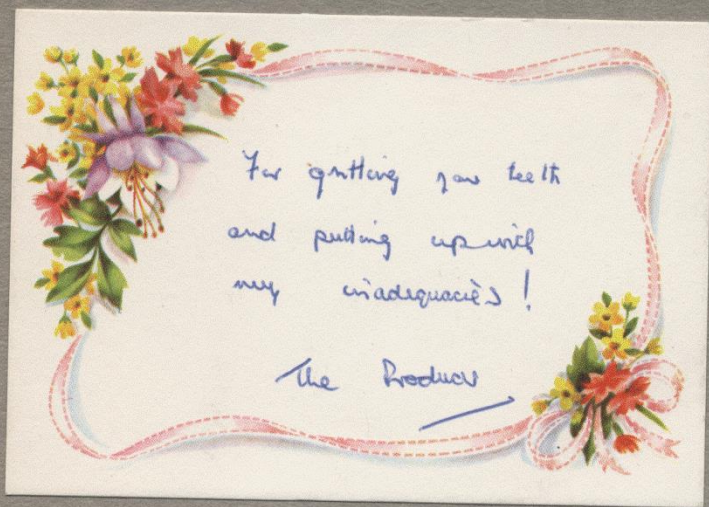 For gritting your teeth
and putting up with
my inadequacies!
The Producer